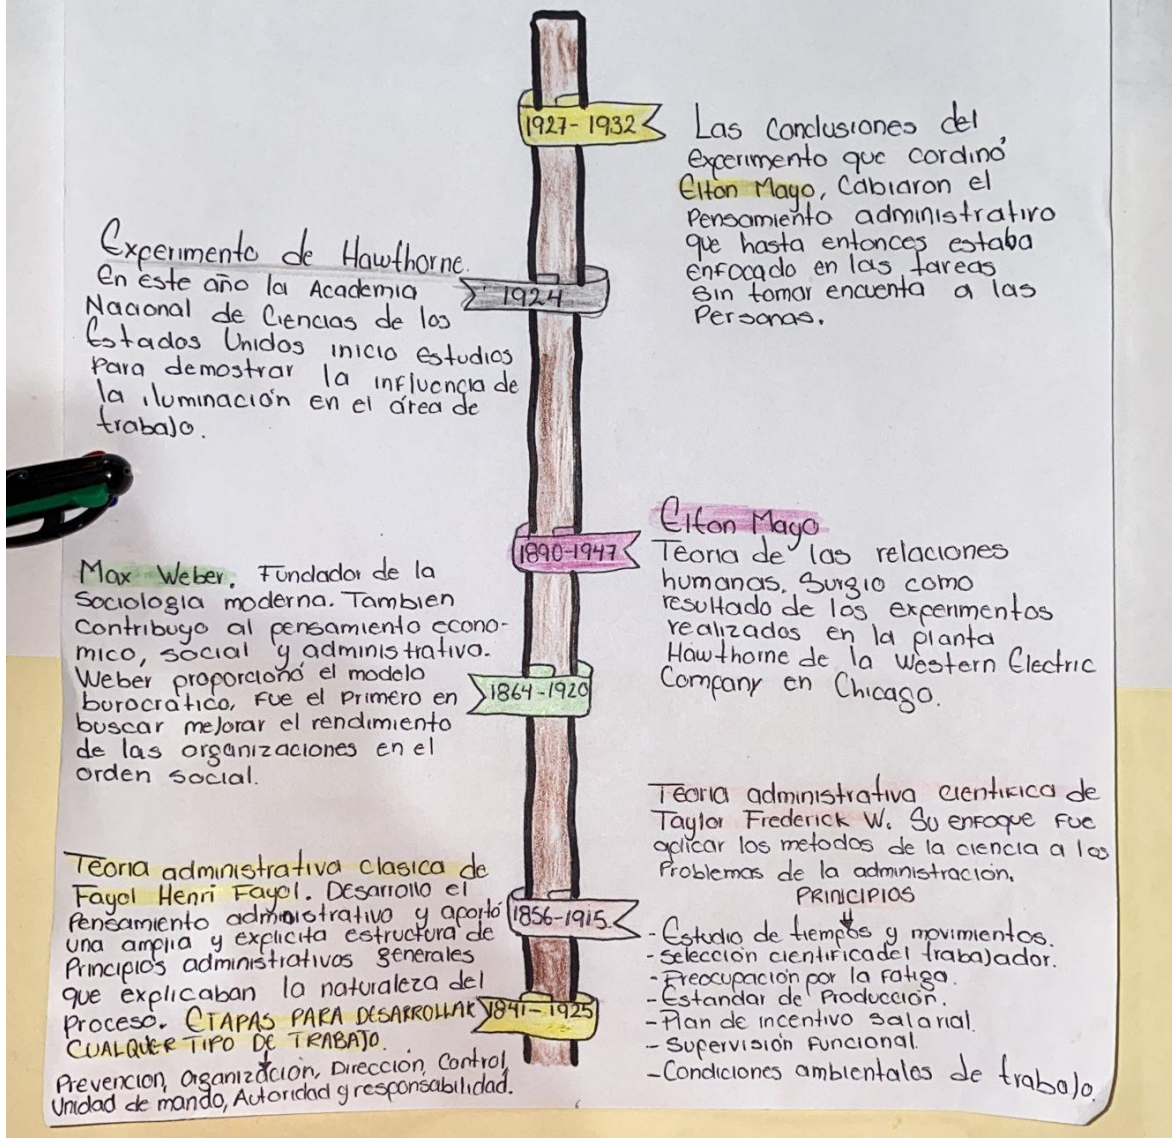 1927-1932
Las Conclusiones del
experimento que cordinó
Elton Mayo, Cabiaron el
Pensamiento administrativo
que hasta entonces estaba
enfocado en las tareas
sin tomar encuenta a las
Personas.
Experimento de Hawthorne.
En este año la Academia
Nacional de Ciencias de los
Estados Unidos inicio estudios
para demostrar la influencia de
la iluminación en el área de
trabajo.
1924
1890-1947
Elton Mayo
Teoria de las relaciones
humanas. Surgio como
resultado de los experimentos
realizados en la planta
Hawthorne de la Western Electric
Company en Chicago.
Max Weber. Fundador de la
Sociologia moderna. Tambien
Contribuyo al pensamiento econo-
mico, social y administrativo.
Weber proporcionó el modelo
burocrático, Fue el primero en
buscar mejorar el rendimiento
de las organizaciones en el
orden social.
1864-1920
Teoria administrativa cientifica de
Taylor Frederick W. Su enfoque fue
aplicar los metodos de la ciencia a los
Problemas de la administración.
PRINICIPIOS
- Estudio de tiempos y movimientos.
- selección cientifica del trabajador.
- Preocupación por la Fatiga.
- Estandar de Producción.
- Plan de incentivo salarial.
- Supervisión Funcional
- Condiciones ambientales de trabajo.
1856-1915.
Teoria administrativa clasica de
Fayol Henri Fayol. Desarrollo el
Pensamiento administrativo y aportó
una amplia y explicita estructura de
Principios administrativos generales
que explicaban la naturaleza del
Proceso. ETAPAS PARA DESARROLLAR
CUALQUER TIPO DE TRABAJO.
Prevencion, Organización, Dirección, Control,
Unidad de mando, Autoridad y responsabilidad.
1841-1925